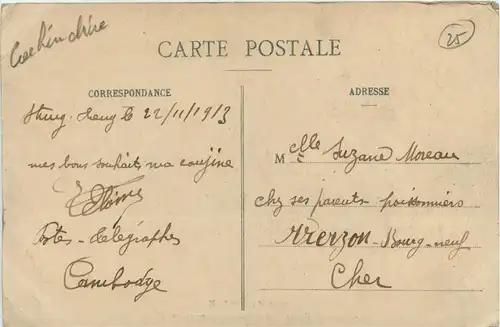 Cochinchine
25
CARTE POSTALE
CORRESPONDANCE
Stung-Treng le 22/11/1913
mes bons souhaits ma cousine
Postes-télégraphes
Cambodge
ADRESSE
Melle Suzane Moreau
chez ses parents poissonniers
Vierzon-Bourg-neuf
Cher